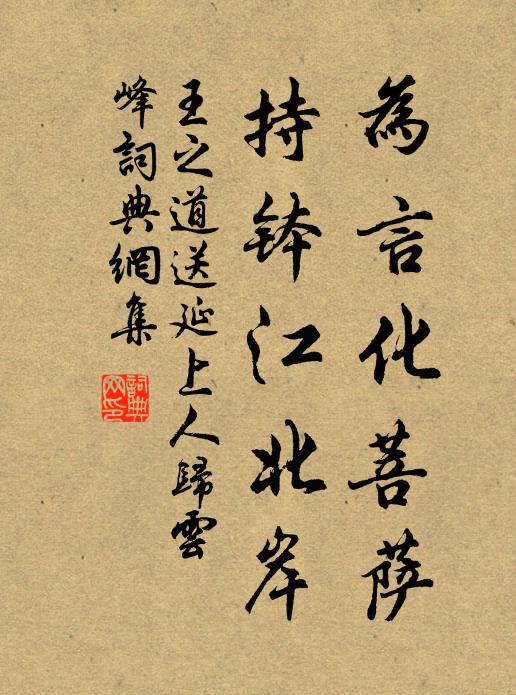 為言化菩薩
持鉢江北岸
王之道送延上人歸雲
峰詞典網集
詞典网印